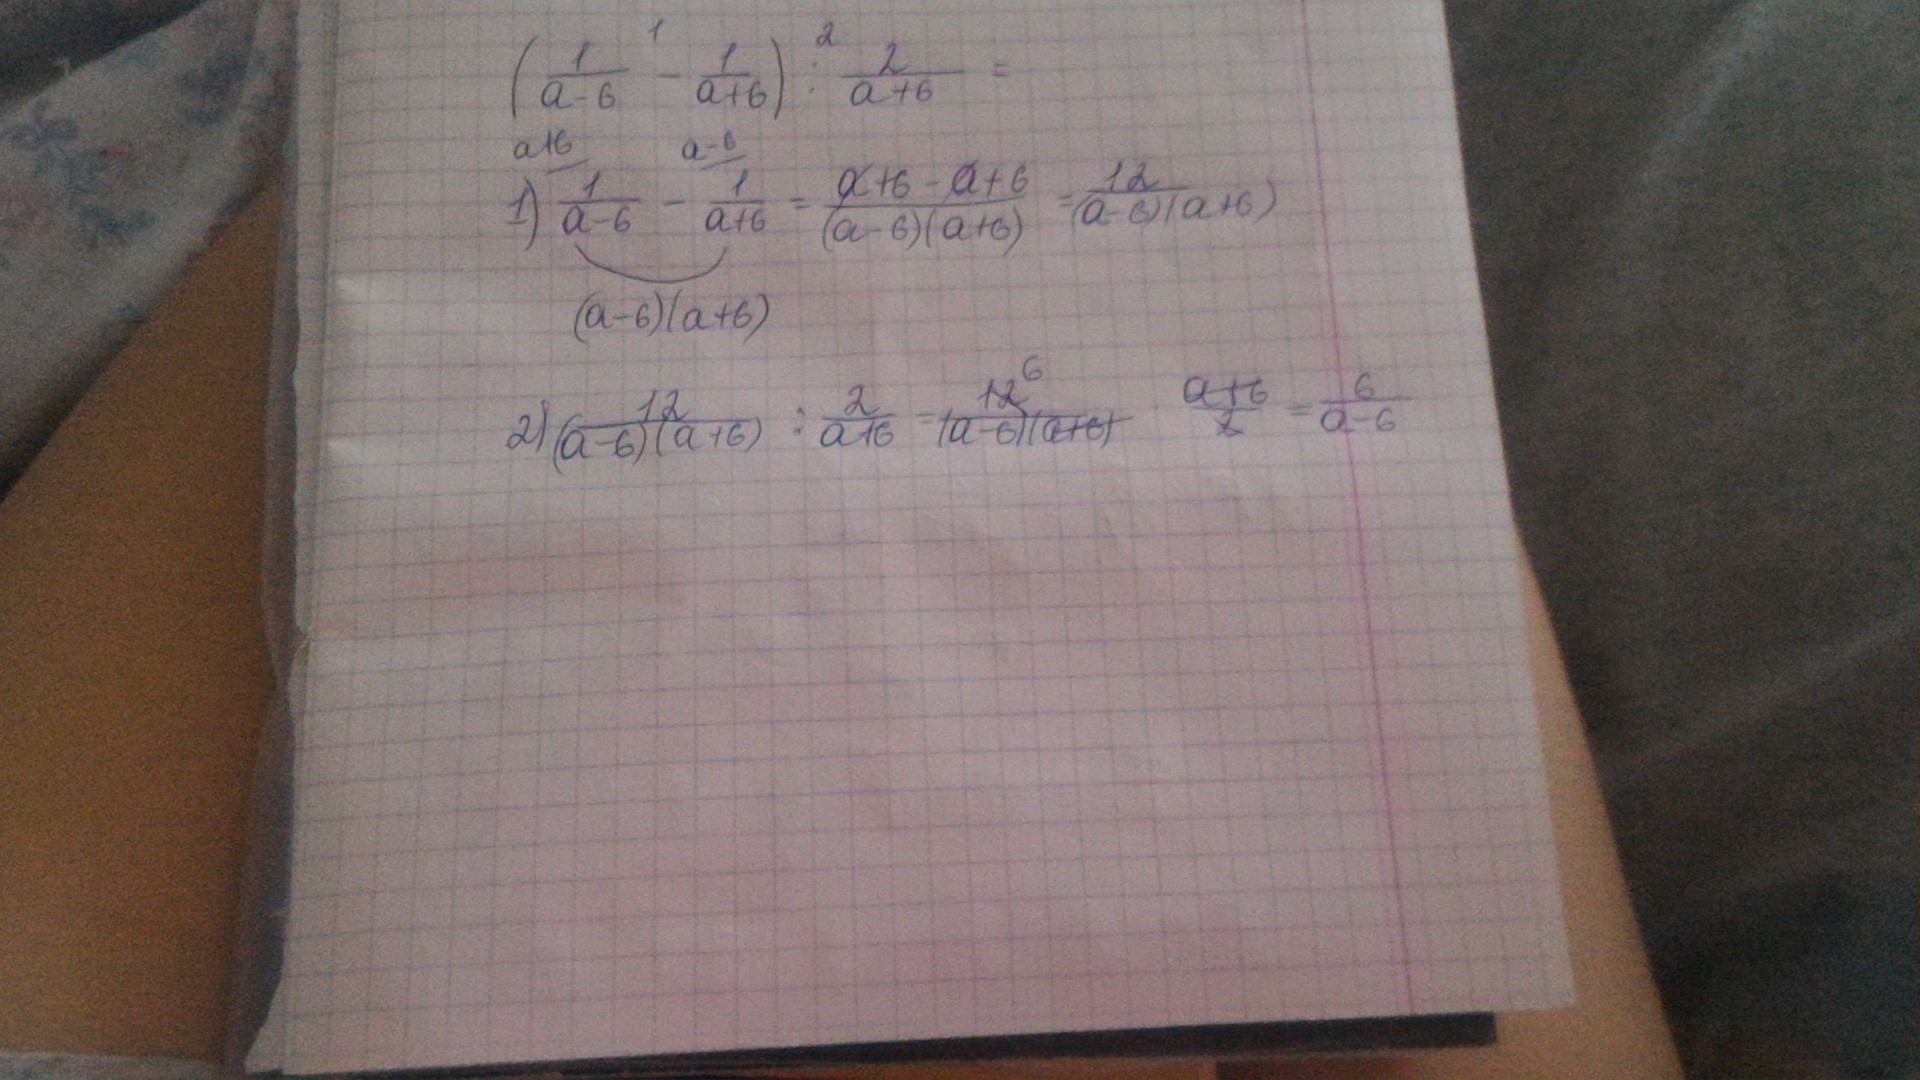 (1/(a-6) - 1/(a+6)) : 2/(a+6) =
1 2
a+6 a-6
1) 1/(a-6) - 1/(a+6) = (a+6-a+6)/((a-6)(a+6)) = 12/((a-6)(a+6))
(a-6)(a+6)
6
2) 12/((a-6)(a+6)) : 2/(a+6) = 12/((a-6)(a+6)) · (a+6)/2 = 6/(a-6)